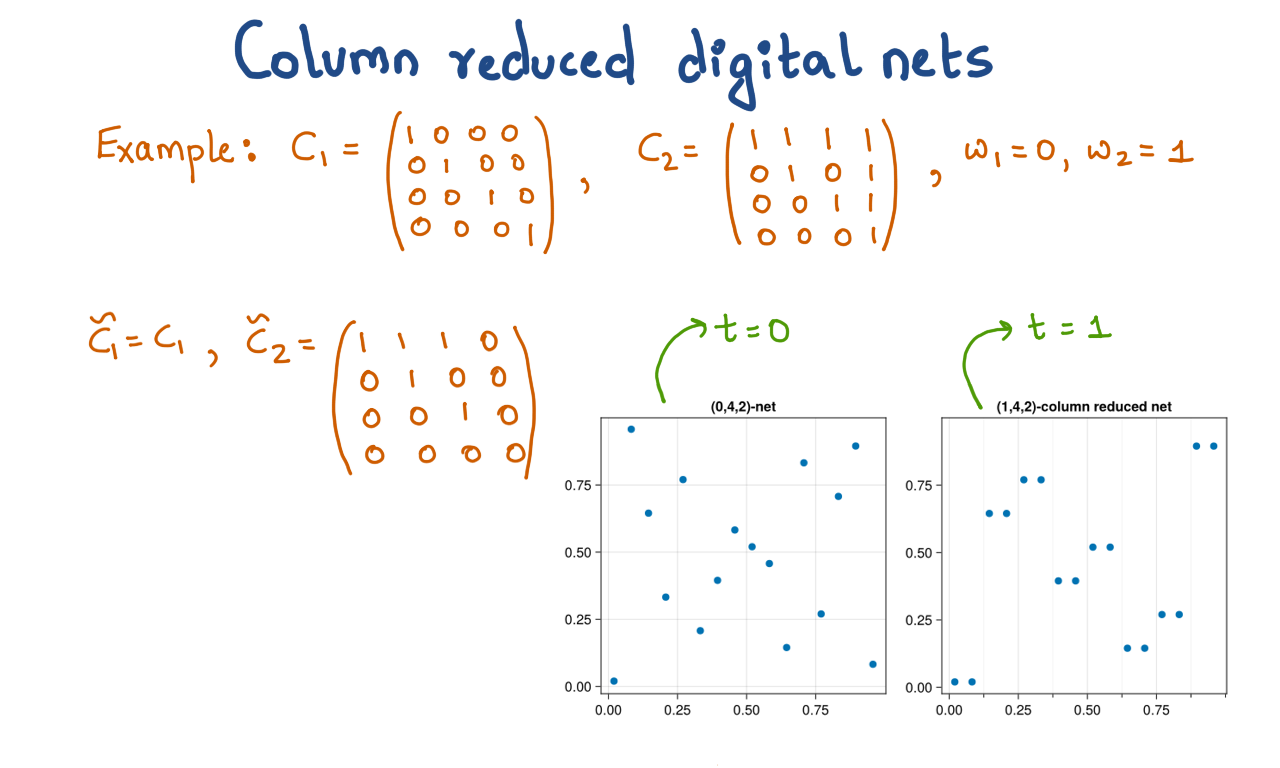 Column reduced digital nets
Example: C₁ = (1 0 0 0
0 1 0 0
0 0 1 0
0 0 0 1) , C₂ = (1 1 1 1
0 1 0 1
0 0 1 1
0 0 0 1) , ω₁ = 0, ω₂ = 1
C̃₁ = C₁ , C̃₂ = (1 1 1 0
0 1 0 0
0 0 1 0
0 0 0 0)
t = 0
t = 1
(0,4,2)-net
0.75
0.50
0.25
0.00
0.00 0.25 0.50 0.75
(1,4,2)-column reduced net
0.75
0.50
0.25
0.00
0.00 0.25 0.50 0.75